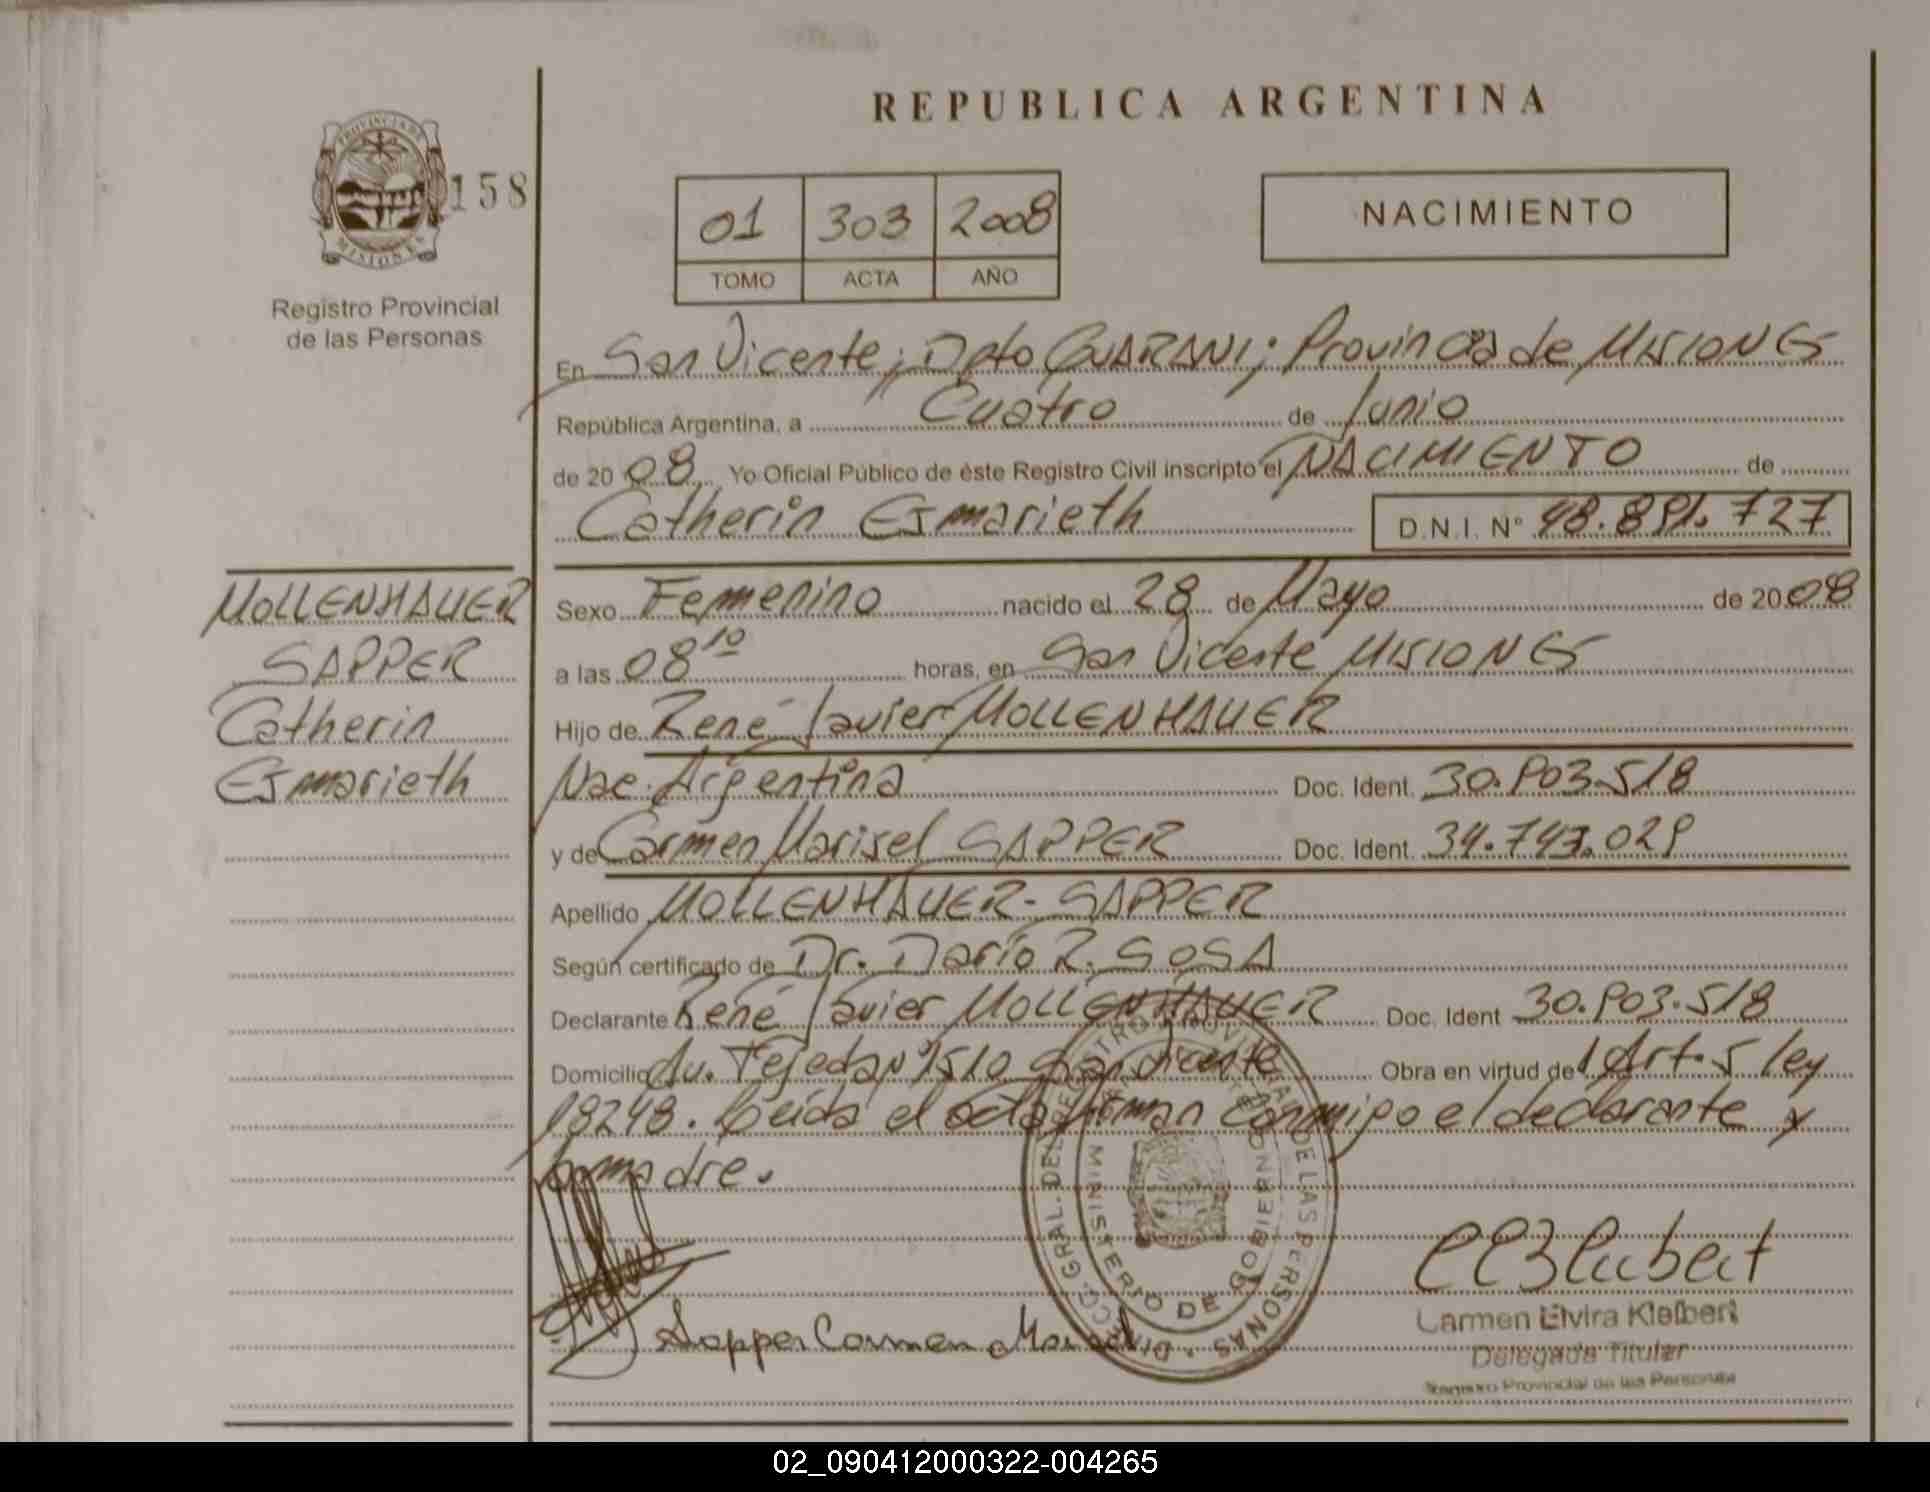 REPUBLICA ARGENTINA
PROVINCIA DE
MISIONES
158
Registro Provincial
de las Personas
01 303 2008
TOMO ACTA AÑO
NACIMIENTO
En San Vicente; Dpto GUARANI; Provincia de MISIONES
República Argentina, a Cuatro de Junio
de 2008 Yo Oficial Público de éste Registro Civil inscripto el NACIMIENTO de
Catherin Esmarieth D.N.I. Nº 48.891.727
MOLLENHAUER
SAPPER
Catherin
Esmarieth
Sexo Femenino nacido el 28 de Mayo de 2008
a las 08 10 horas, en San Vicente MISIONES
Hijo de René Javier MOLLENHAUER
Nac. Argentina Doc. Ident. 30.903.518
y de Carmen Marisel SAPPER Doc. Ident. 34.743.029
Apellido MOLLENHAUER - SAPPER
Según certificado de Dr. Darío R. SOSA
Declarante René Javier MOLLENHAUER Doc. Ident 30.903.518
Domicilio Av. Tejeda Nº 1510 San Vicente Obra en virtud de Art. 5 ley
18248. Leída el acta firman conmigo el declarante y
la madre.
Sapper Carmen Marisel
DIRECC. GRAL. DEL REGISTRO PROVINCIAL DE LAS PERSONAS
MINISTERIO DE GOBIERNO
Carmen Elvira Kleibert
Delegada Titular
Registro Provincial de las Personas
02_090412000322-004265